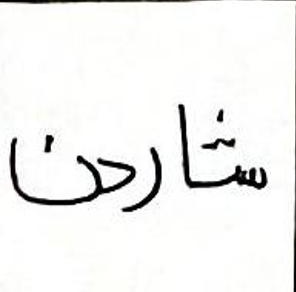 شاردن